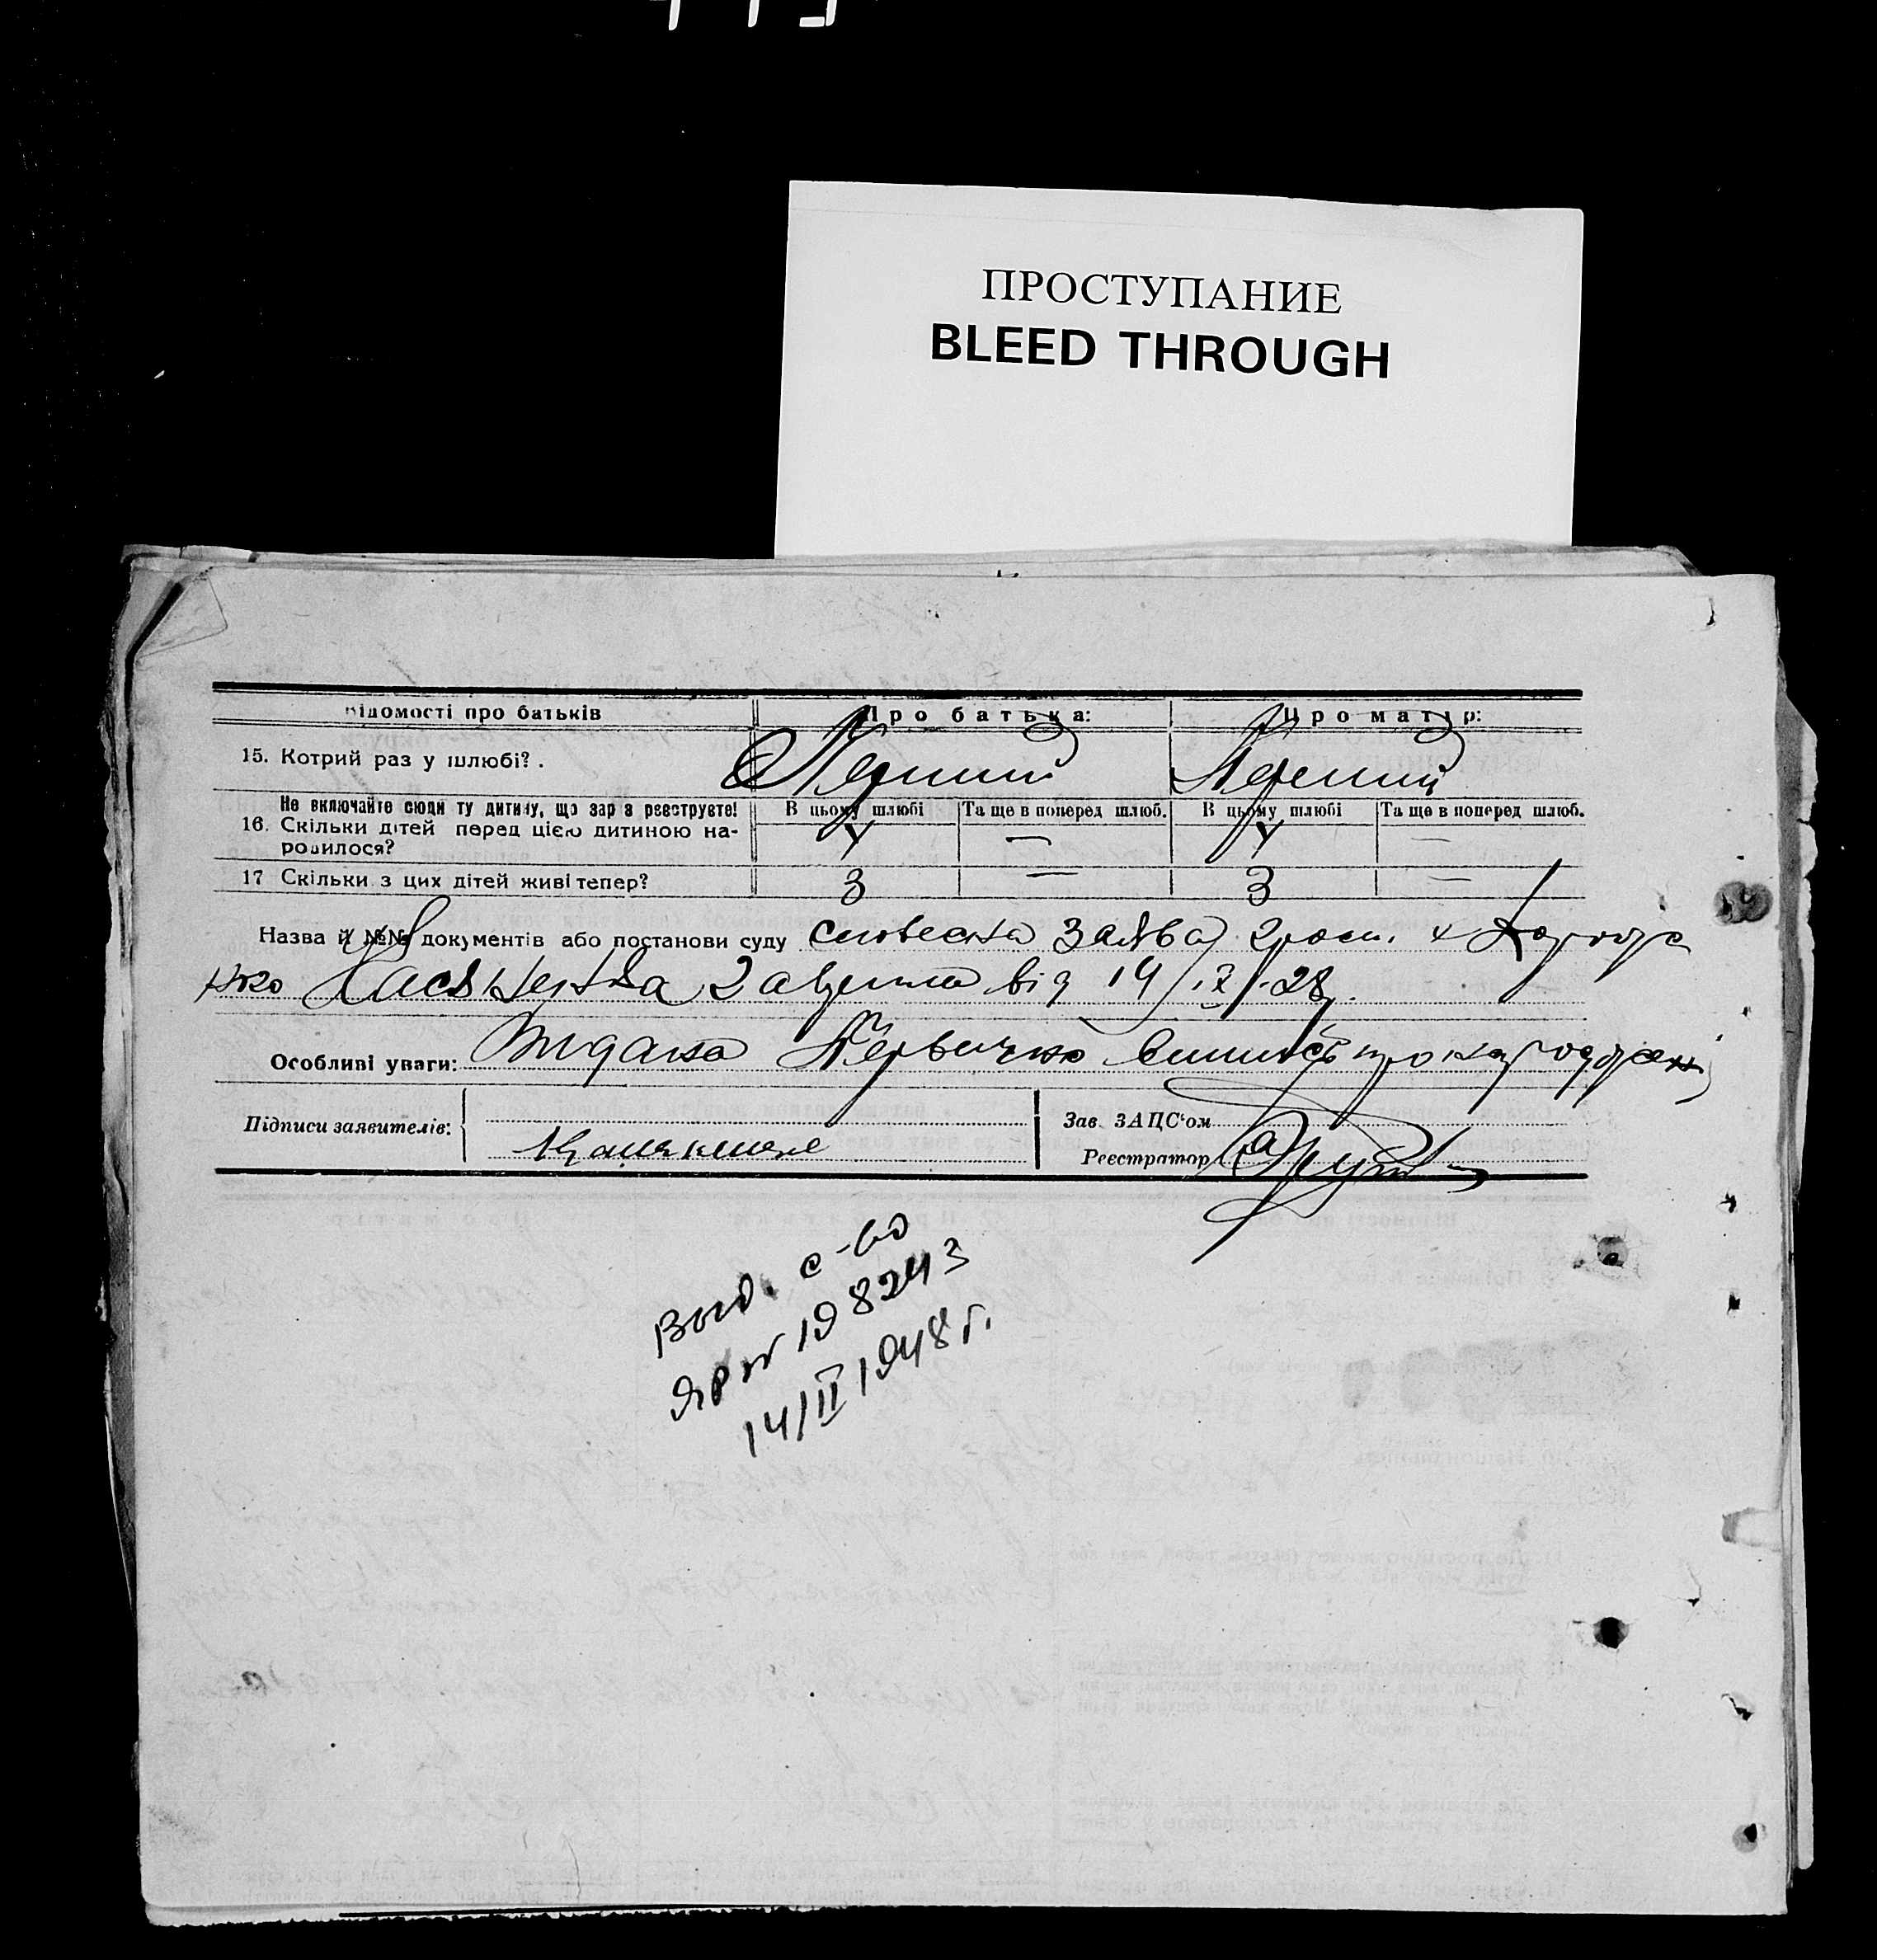 ПРОСТУПАНИЕ
BLEED THROUGH
Відомості про батьків Про батька: Про матір:
15. Котрий раз у шлюбі? . Перший Перший
Не включайте сюди ту дитину, що зараз реєструєте! В цьому шлюбі Та ще в поперед шлюб. В цьому шлюбі Та ще в поперед шлюб.
16. Скільки дітей перед цією дитиною на-
родилося? 4 — 4 —
17 Скільки з цих дітей живі тепер? 3 — 3 —
Назва й №№ документів або постанови суду словесна заява
від 19
Особливі уваги: Видана Первичне виписъ про народжен
Підписи заявителів: Зав. ЗАЦС'ом
Реєстратор
Выд. с-во
ЯР № 198243
14/II 1948 г.